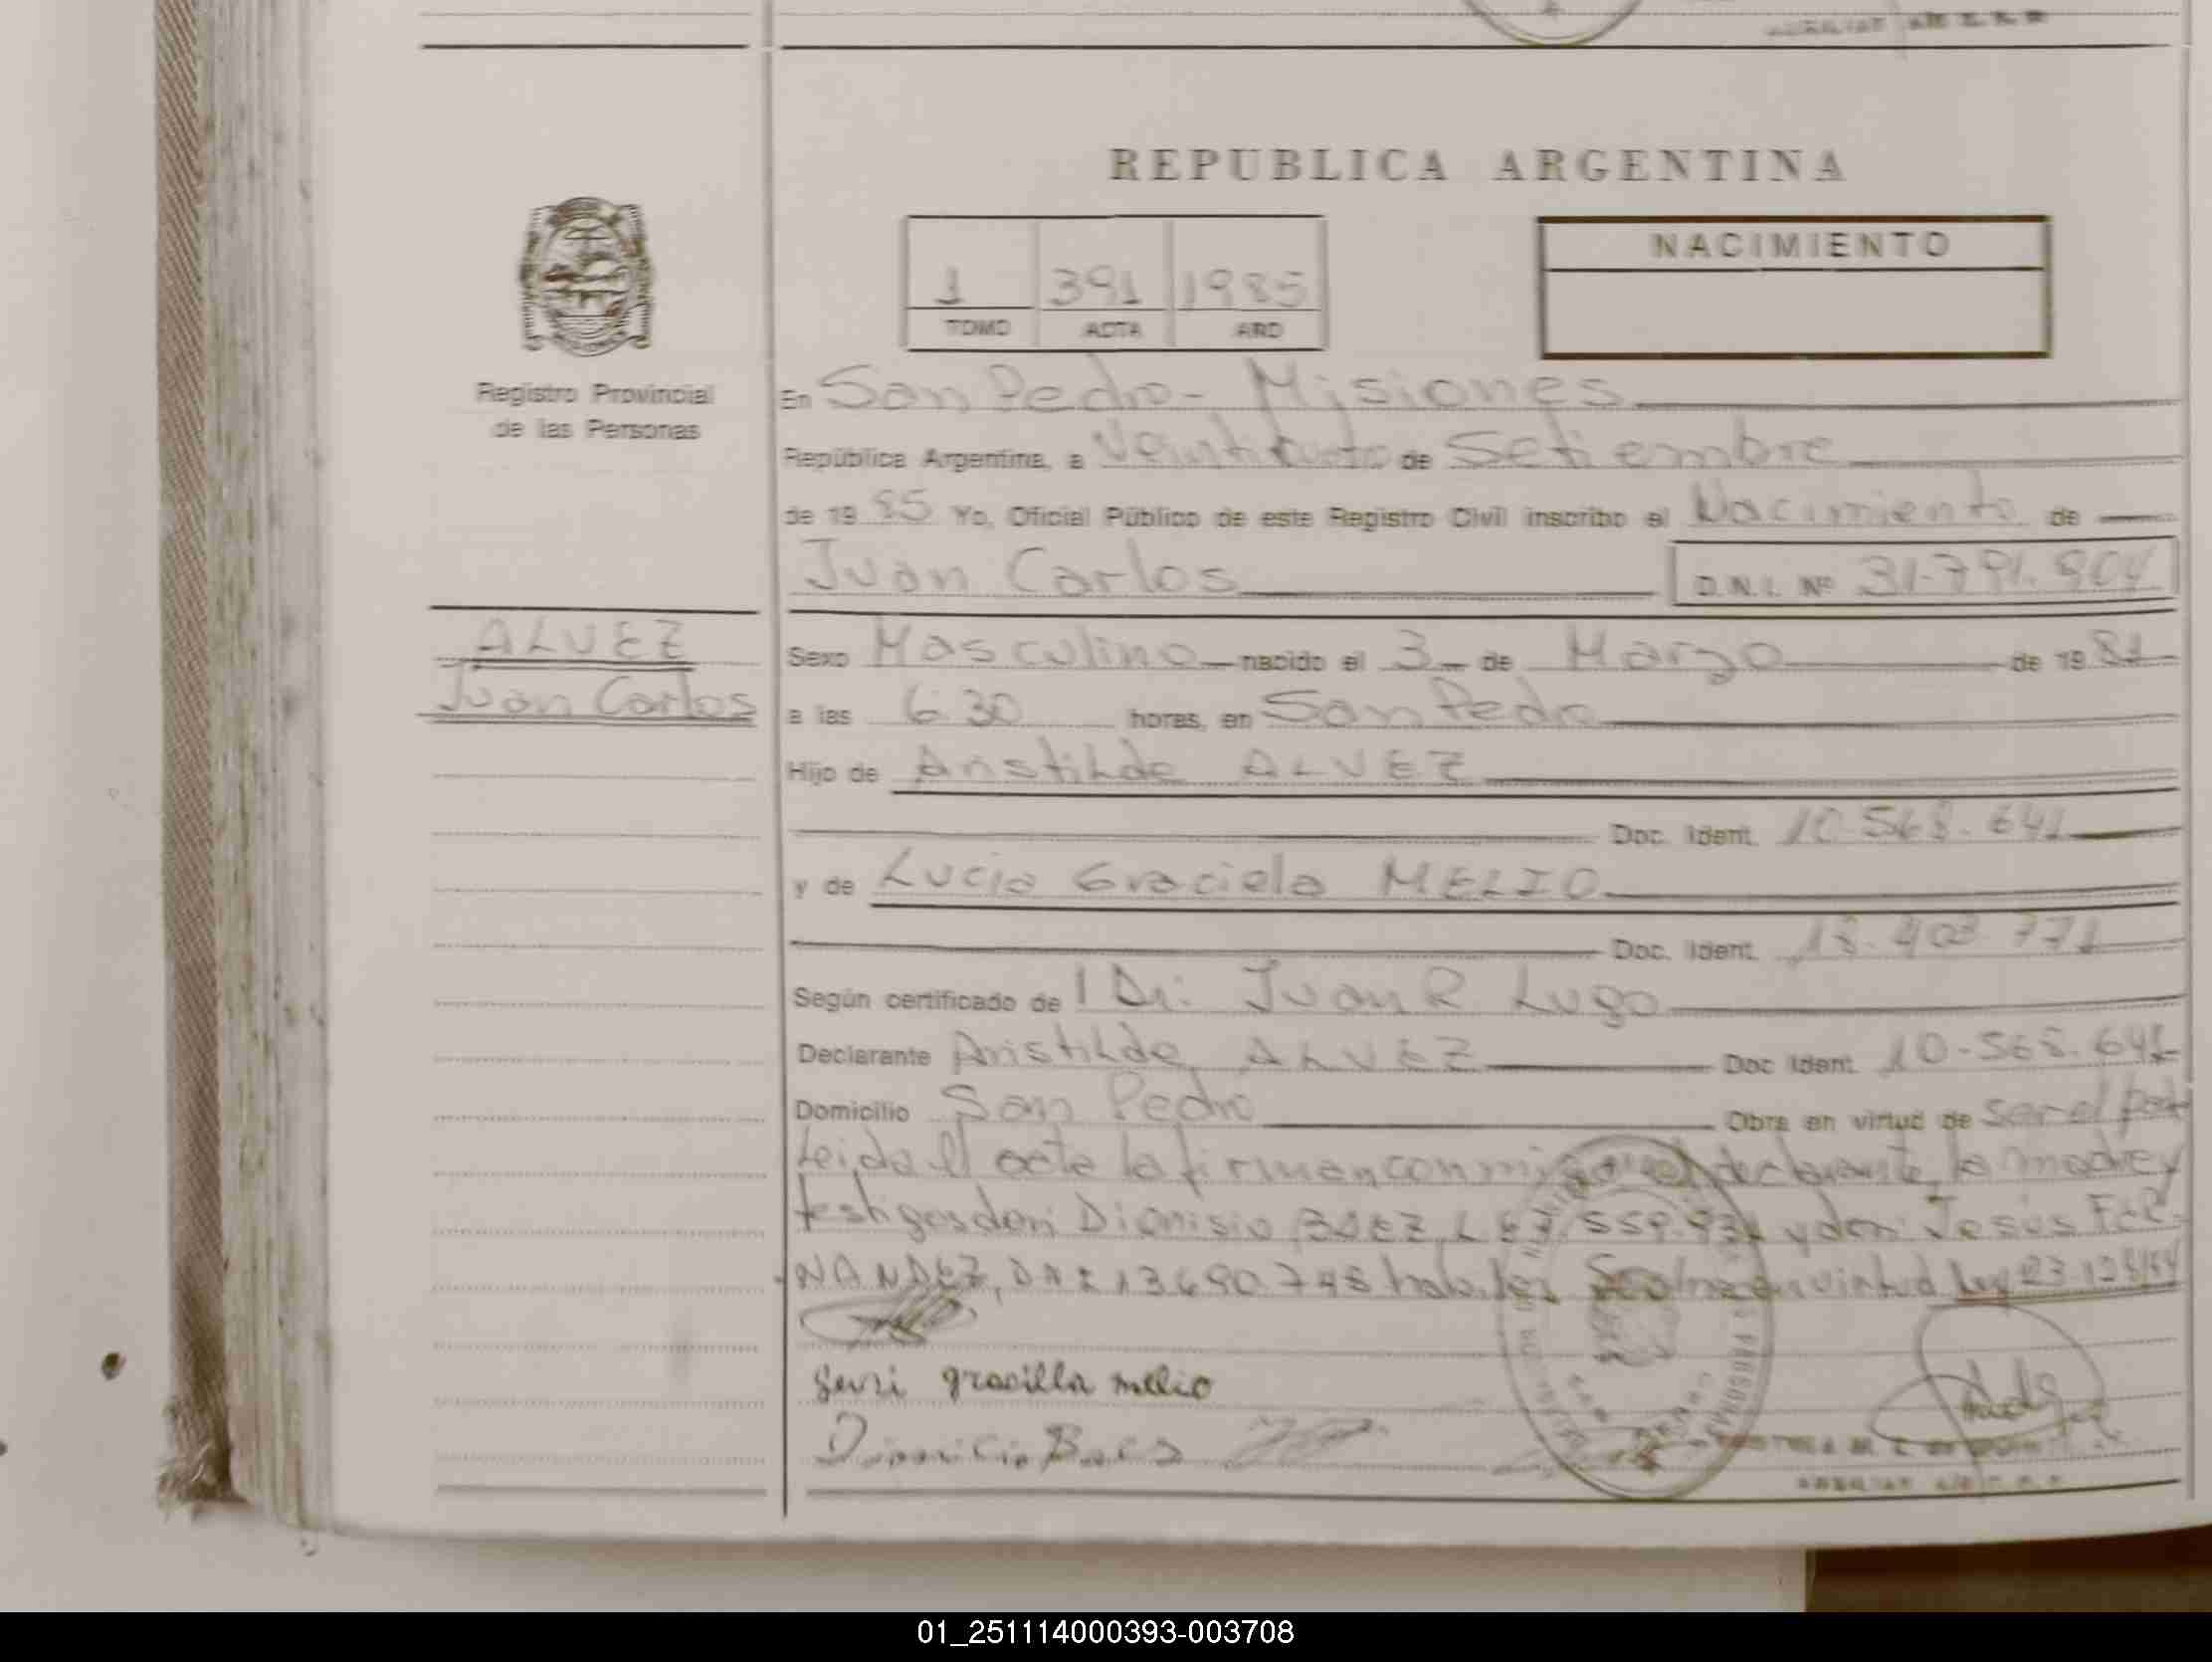 REPUBLICA ARGENTINA
NACIMIENTO
1 391 1985
TOMO ACTA AÑO
Registro Provincial
de las Personas
En San Pedro - Misiones
República Argentina, a de Setiembre
de 1985 Yo, Oficial Público de este Registro Civil inscribo el Nacimiento de
Juan Carlos D.N.I. Nº 31.791.904
ALVEZ
Juan Carlos
Sexo Masculino nacido el 3 de Marzo de 1981
a las 6:30 horas, en San Pedro
Hijo de Aristilde ALVEZ
Doc. Ident. 10.568.641
y de Lucia Graciela MELIO
Doc. Ident. 18.403.771
Según certificado de l Dr. Juan R Lugo
Declarante Aristilde ALVEZ Doc Ident. 10.568.641
Domicilio San Pedro Obra en virtud de ser el
Leida el acta la firman conmigo el declarante, la madre y
testigos don: Dionisio BAEZ, L E 7.559.931 y don: Jesús FER-
NANDEZ, DNI 13.690.748 en virtud Ley
gracilla melio
Baes
01_251114000393-003708